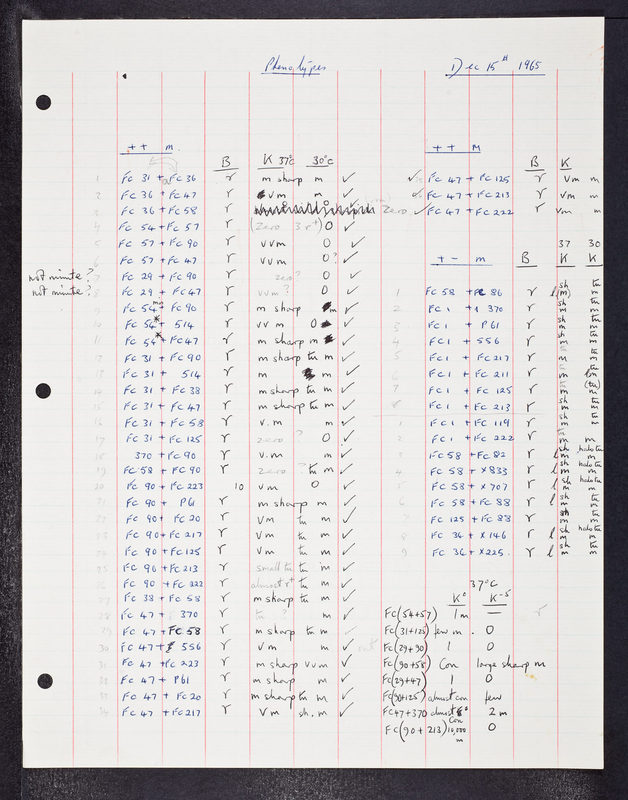 Phenotypes
Dec 15th 1965
+ + m.
B K 37°c 30°c
1 FC 31 + FC 36 r m sharp m ✓
2 FC 36 + FC 47 r vm m ✓
3 FC 36 + FC 58 r
4 FC 54 + FC 57 r (zero 3 r+) 0 ✓
5 FC 57 + FC 90 r vvm 0 ✓
6 FC 57 + FC 47 r vvm 0? ✓
not minute? 7 FC 29 + FC 90 r zero? 0 ✓
not minute? 8 FC 29 + FC 47 r vvm? 0 ✓
9 FC 54 + FC 90 r m sharp m ✓
10 FC 54 + 514 r vvm 0 ✓
11 FC 54 + FC 47 r m sharp m ✓
12 FC 31 + FC 90 r m sharp tu m ✓
13 FC 31 + 514 r m m ✓
14 FC 31 + FC 38 r m sharp tu m ✓
15 FC 31 + FC 47 r m sharp tu m ✓
16 FC 31 + FC 58 r v.m m ✓
17 FC 31 + FC 125 r zero? 0 ✓
18 370 + FC 90 r v.m m ✓
19 FC 58 + FC 90 r zero? tu m ✓
20 FC 90 + FC 223 10 vm 0 ✓
21 FC 90 + P61 r m sharp m ✓
22 FC 90 + FC 20 r vm tu m ✓
23 FC 90 + FC 217 r vm tu m ✓
24 FC 90 + FC 125 r vm tu m ✓
25 FC 90 + FC 213 r small tu tu m ✓
26 FC 90 + FC 222 r almost r+ tu m ✓
27 FC 38 + FC 58 r m sharp tu m ✓
28 FC 47 + 370 r tu ? m ✓
29 FC 47 + FC 58 r m sharp tu m
30 FC 47 + 556 r vm m ✓
31 FC 47 + FC 223 r m sharp vvm ✓
32 FC 47 + P61 r m sharp m ✓
33 FC 47 + FC 20 r m sharp tu m ✓
34 FC 47 + FC 217 r vm sh. m ✓
+ + M
B K
✓ FC 47 + FC 125 r vm m
✓ FC 47 + FC 213 r vm m
zero ✓ FC 47 + FC 222 r vm m
37 30
+ - m B K K
1 FC 58 + FC 86 r l sh (m) tu m
2 FC 1 + 370 r sh m tu m
3 FC 1 + P61 r sh m tu m
4 FC 1 + 556 r sh m tu m
5 FC 1 + FC 217 r m tu m
6 FC 1 + FC 211 r m
7 FC 1 + FC 125 r sh m (tu) m
8 FC 1 + FC 213 r sh m tu m
1 FC 1 + FC 119 r sh m tu m
2 FC 1 + FC 222 r m m
3 FC 58 + FC 82 r l sh m halo tu m
4 FC 58 + X833 r l sh m halo tu m
5 FC 58 + X707 r l sh m halo tu m
6 FC 58 + FC 88 r l sh m tu m
7 FC 125 + FC 88 r sh m tu m
8 FC 36 + X146 r l sh m halo tu m
9 FC 36 + X225. r l sh m tu m
37°C
K° K-5
FC(54+57) 1m —
FC(31+125) few m. 0
FC(29+90) 1 0
FC(90+58) Con large sharp m
FC(29+47) 1 0
FC(90+125) almost con few
FC47+370 almost Con 2m
FC(90+213) 10,000 m 0